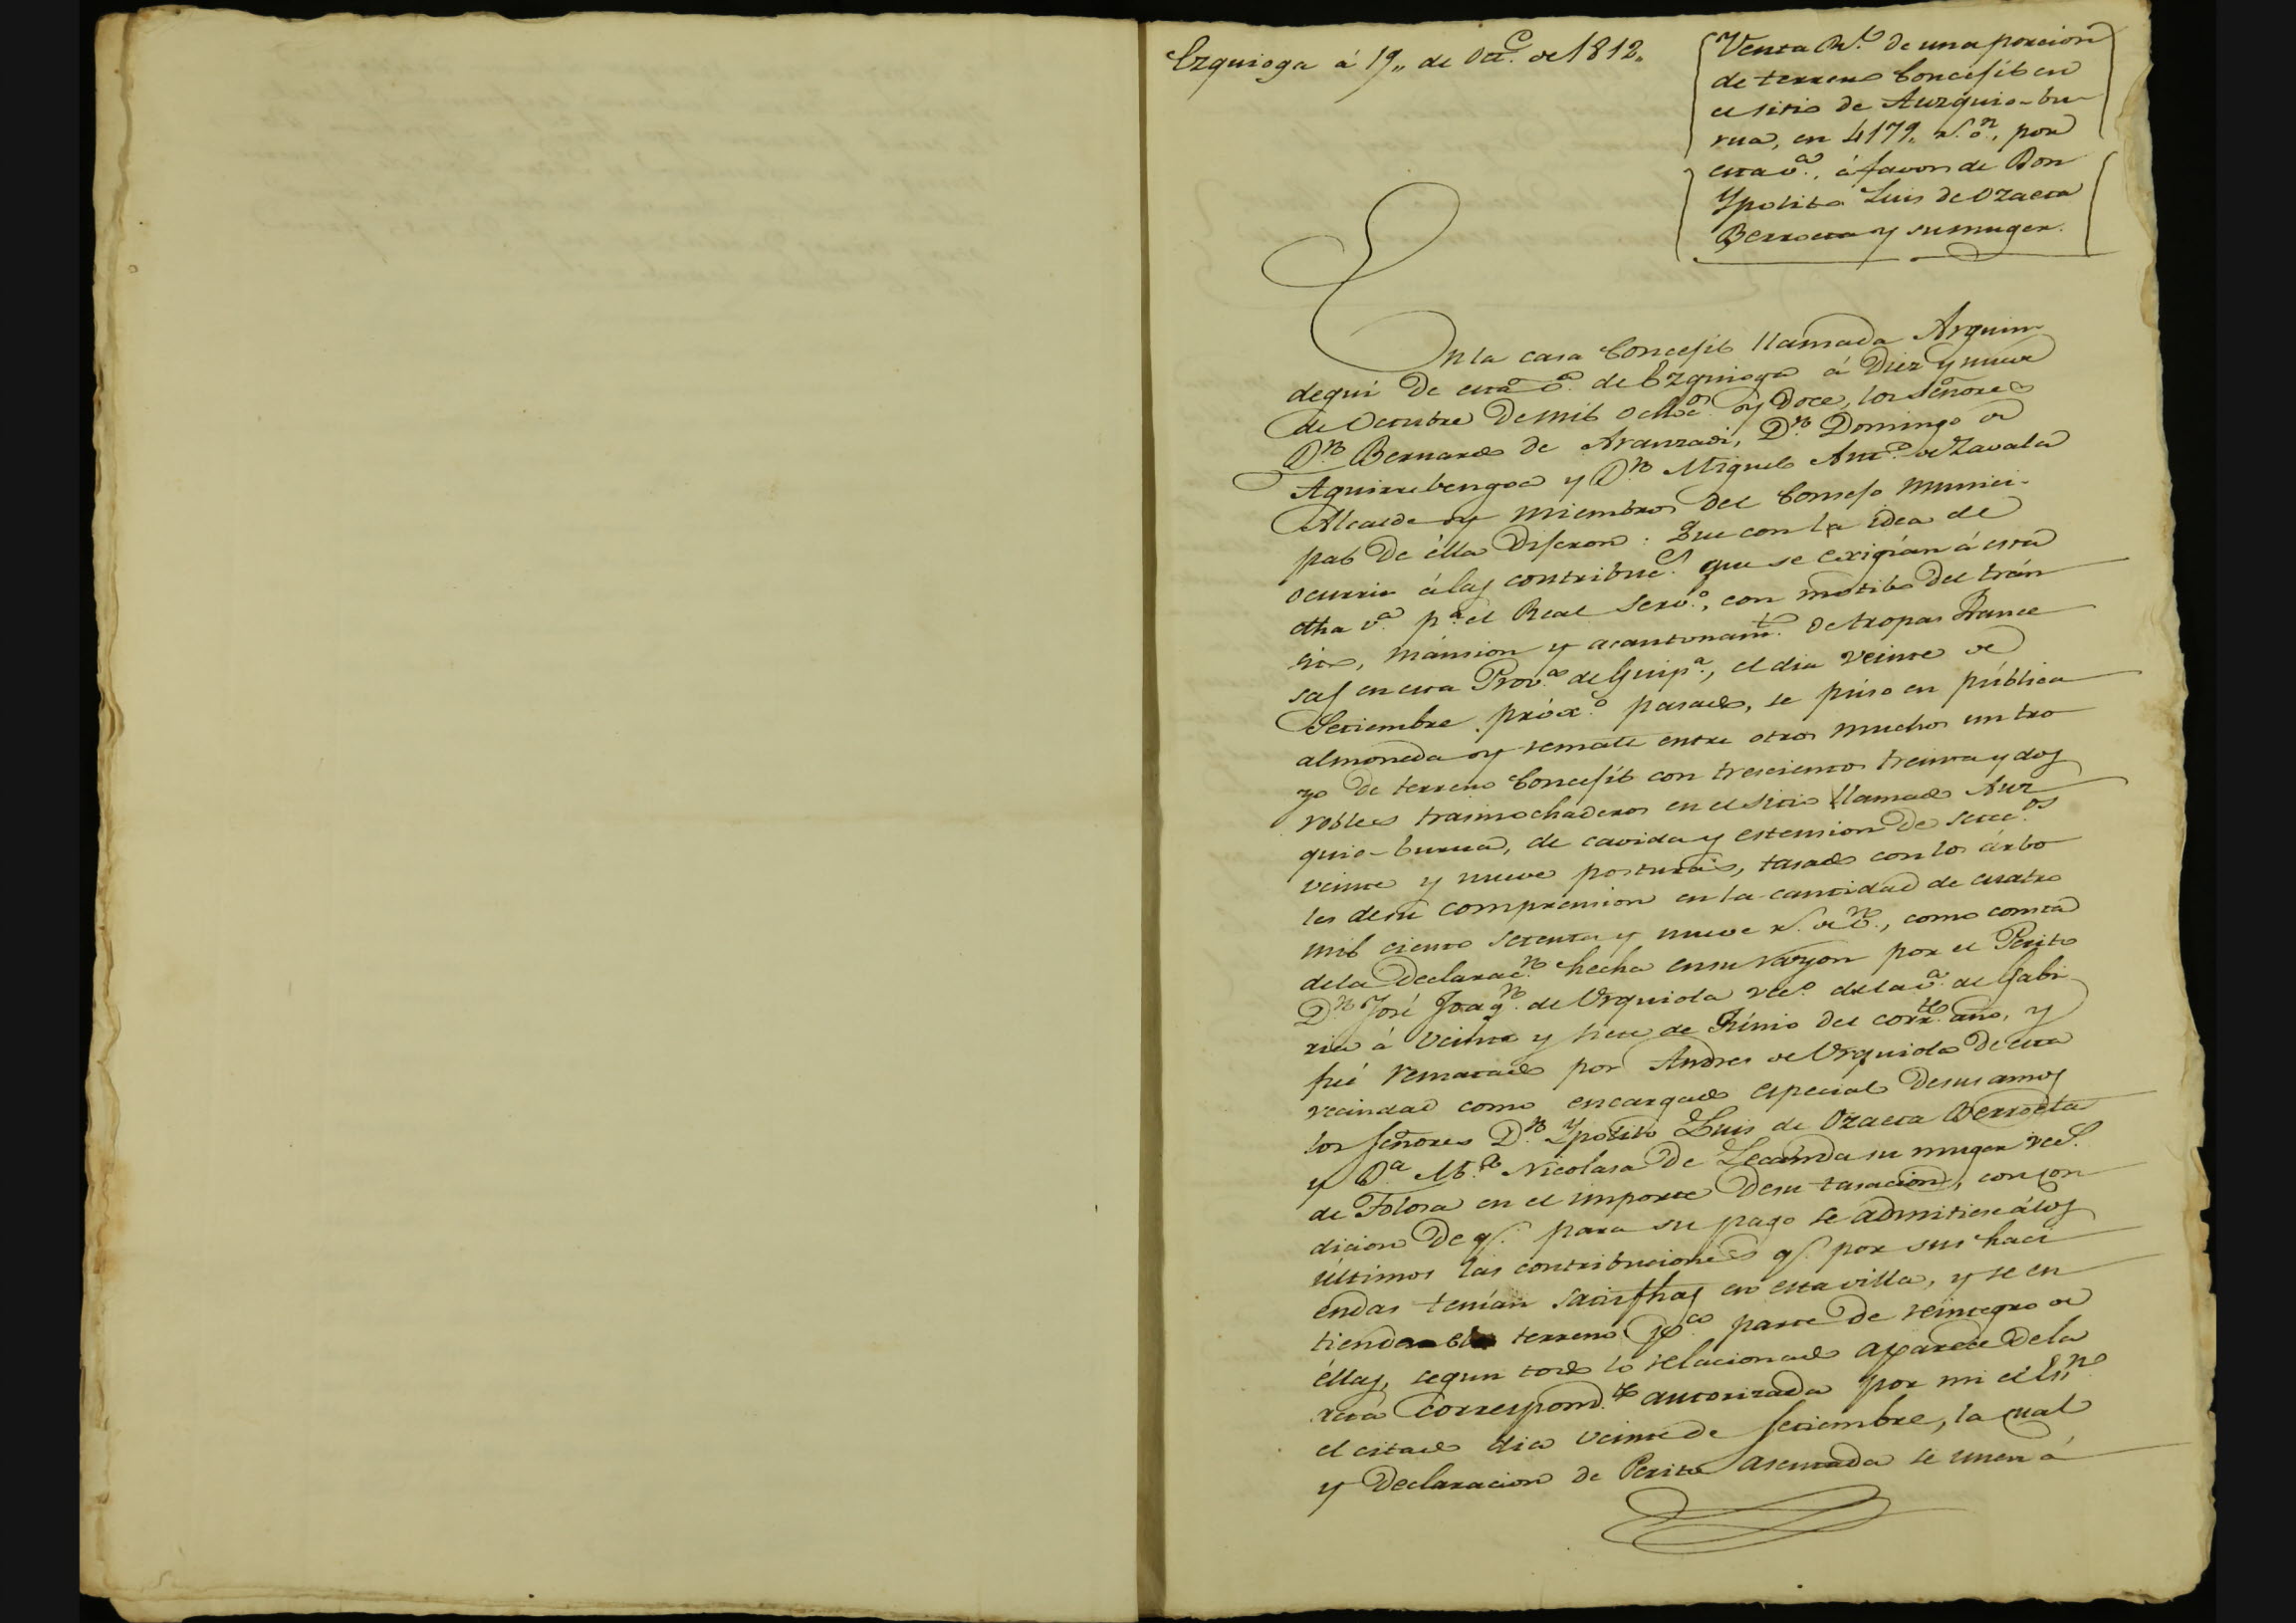 Ezquioga á 19,, de Oct.e de 1812,,
Venta Rl. de una porcion
de terreno Concejil en
el sitio de Auzquio-bu-
rua, en 4179. rs. vn., por
esta va., á favor de Don
Ypolito Luis de Ozaeta
Berroeta y su muger.
En la casa Concejil llamada Arguin-
degui de esta va. de Ezquioga á Diez y nueve
de Octubre de mil ochos. y doce, los Señores
Dn. Bernardo de Aranzadi, Dn. Domingo de
Aguirrebengoa y Dn. Miguel Anto. de Zavala
Alcalde y miembros del Consejo Munici-
pal de élla Dijeron: Que con la idea de
ocurrir á las contribucs. que se exigían á esta
dha va. pa. el Real Servo., con motibo del trán
sito, mánsion y acantonamto. de tropas France
sas en esta Prova. de Guipa., el dia veinte de
Setiembre próxo. pasado, se púso en pública
almoneda y remate entre otros muchos un tro
zo de terreno Concejil con trescientos treinta y dos
robles trasmochaderos en el sitio llamado Auz
quio-burua, de cavida y estension de setecos.
veinte y nueve posturas, tasado con los árbo
les de su comprension en la cantidad de cuatro
mil ciento setenta y nueve rs. de vn., como consta
de la Declaracn. hecha en su razon por el Perito
Dn. José Joaqn. de Urquiola veco. de la va. de Gabi
ria á veinte y siete de Júnio del corrte. año, y
fué rematado por Andres de Urquiola de esta
vecindad como encargado especial de sus amos
los Señores Dn. Ypolito Luis de Ozaeta Berroeta
y Da. Ma. Nicolasa de Lecanda su muger vecs.
de Tolosa en el importe de su tasacion, con con
dicion de q. para su pago se admitiese á los
últimos las contribuciones q. por sus haci
endas tenían satisfhas en esta villa, y se en
tienda el terreno pco. parte de reintegro de
éllas, segun todo lo relacionado aparece de la
acta correspondte. autorizada por mi el Esno.
el citado dia veinte de Setiembre, la cual
y Declaracion de Perito asentada se unen á